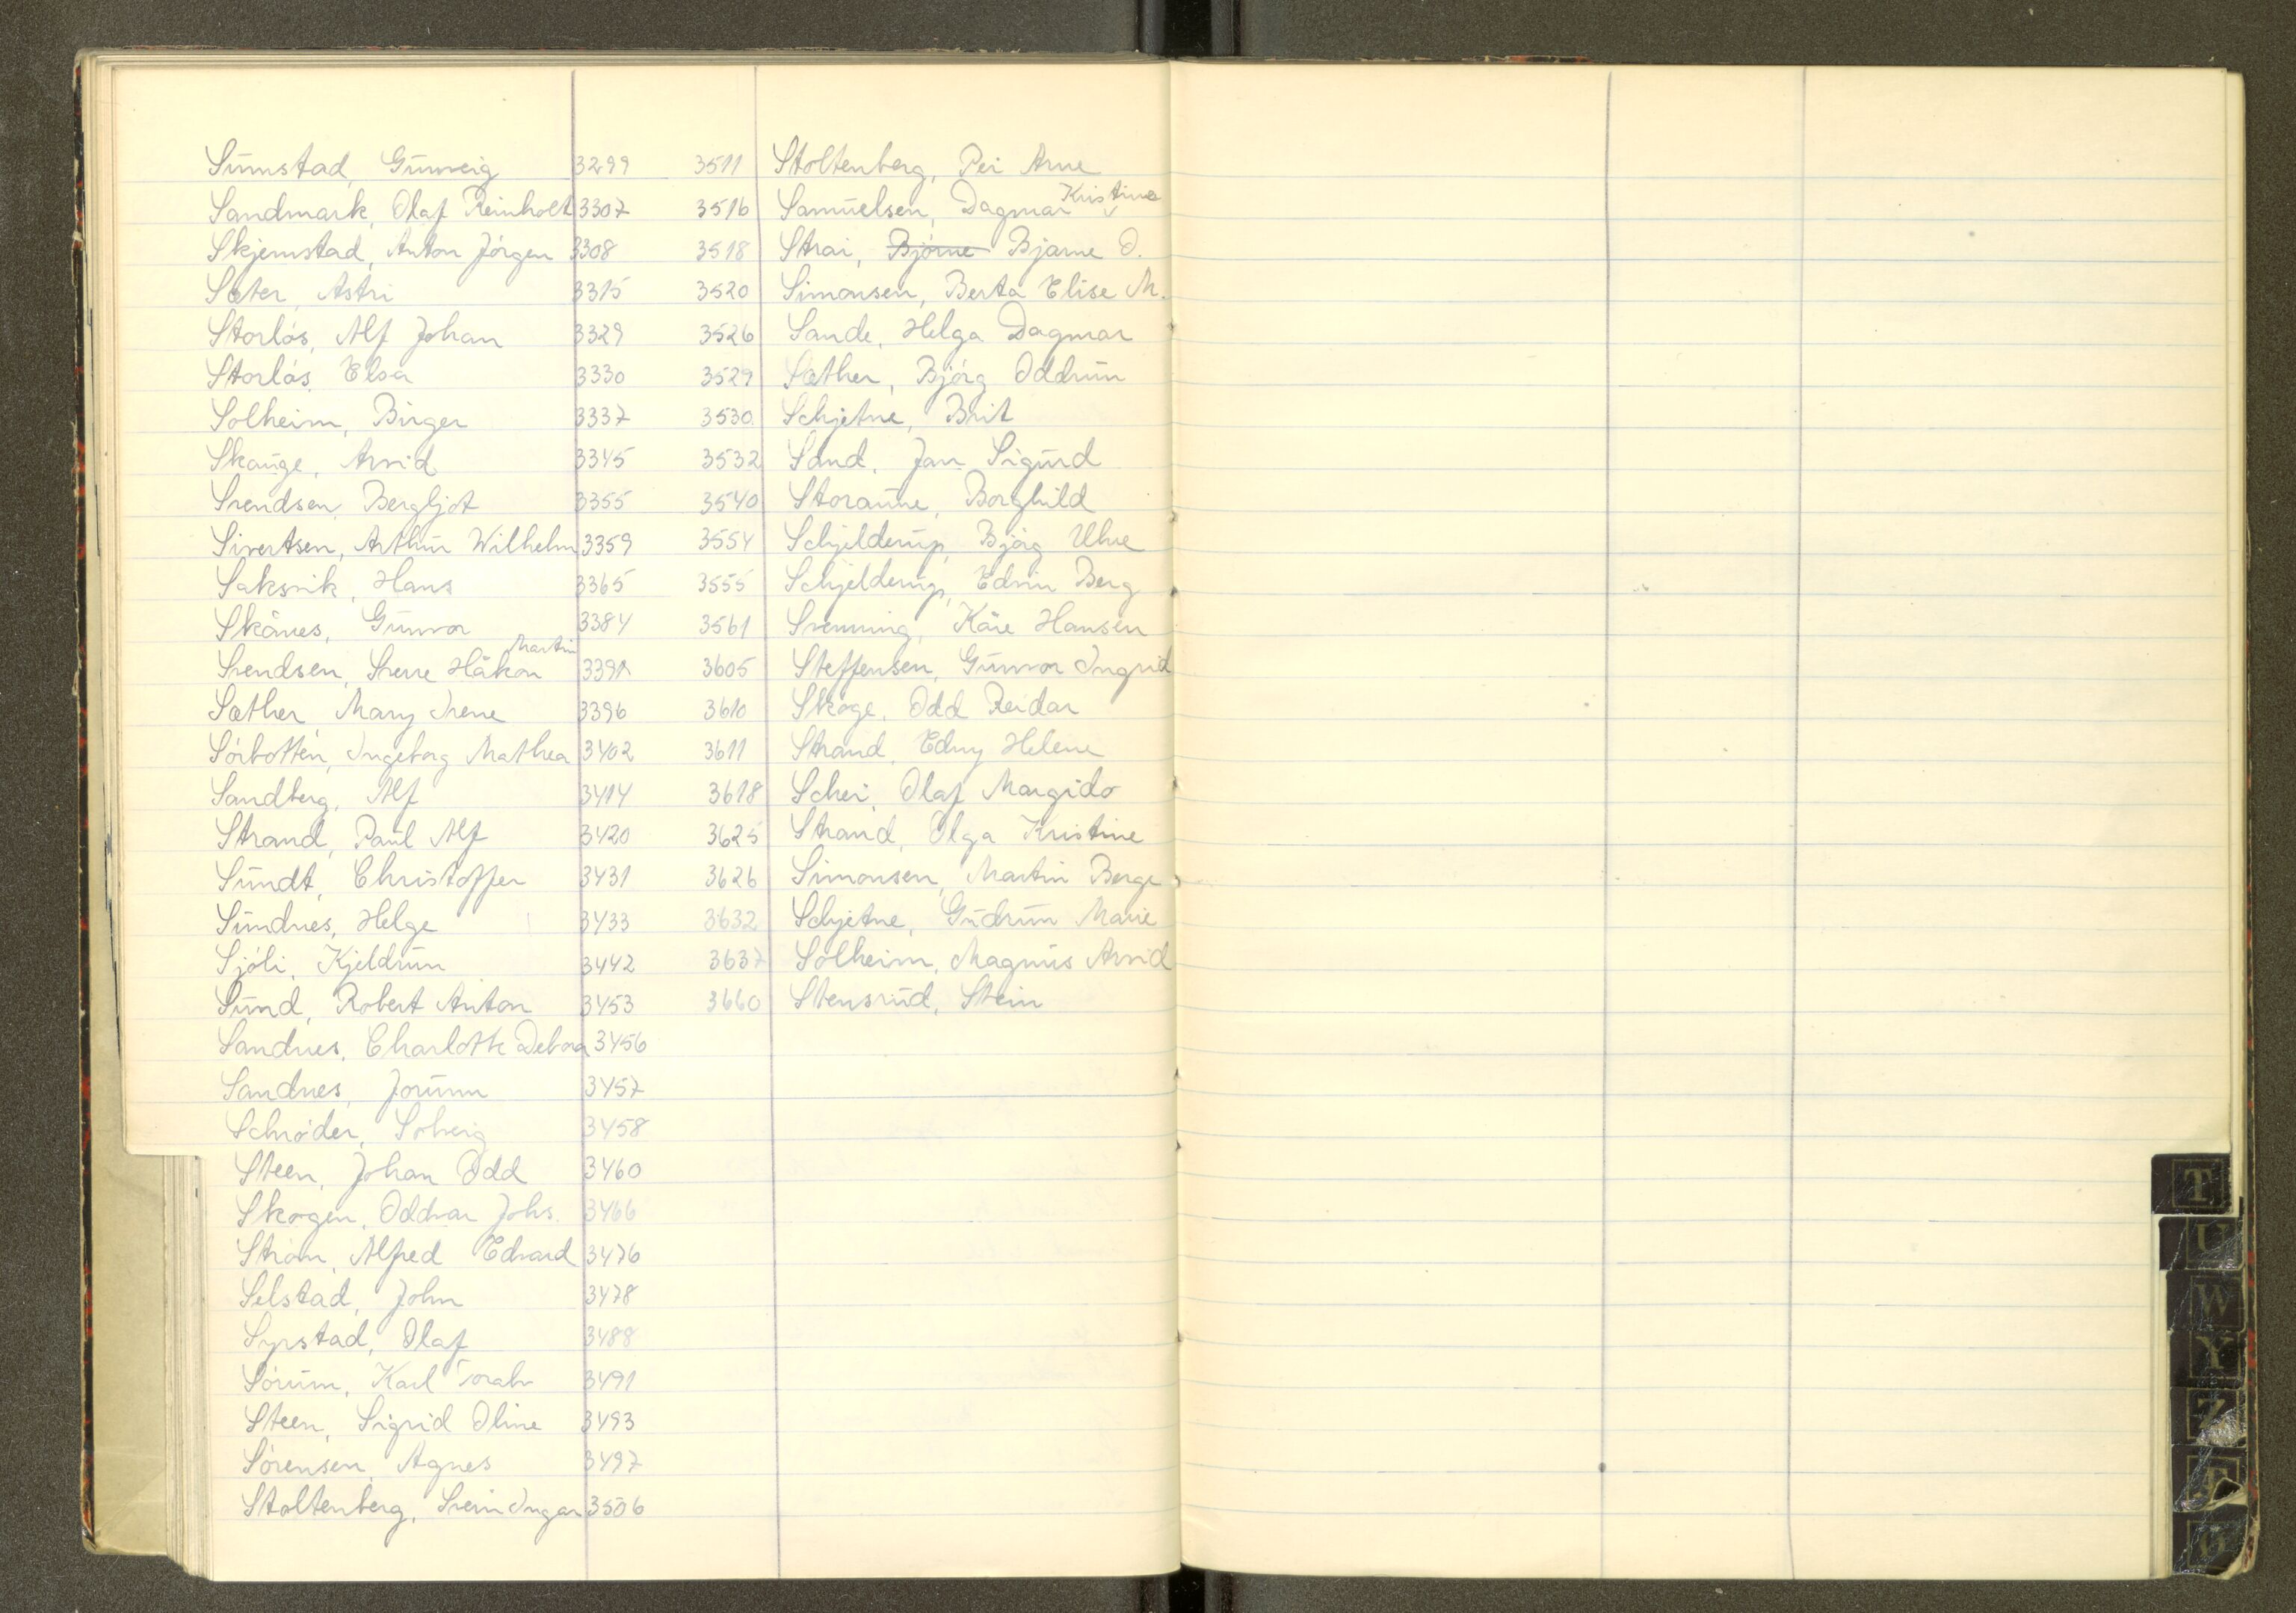 Sunnstad, Gunveig 3299
Sandmark, Olaf Reinholt 3307
Skjemstad, Anton Jörgen 3308
Sæter, Astri 3315
Storlös, Alf Johan 3329
Storlös, Elsa 3330
Solheim, Birger 3337
Skauge, Arvid 3345
Svendsen, Bergljot 3355
Sivertsen, Arthur Wilhelm 3359
Saksvik, Hans 3365
Skånes, Gunvor 3384
Svendsen, Sverre Håkon Martin 3391
Sæther, Mary Irene 3396
Sörbotten, Ingeborg Mathea 3402
Sandberg, Alf 3414
Strand, Paul Alf 3420
Sundt, Christoffer 3431
Sundnes, Helge 3433
Sjöli, Kjeldrun 3442
Sund, Robert Anton 3453
Sandnes, Charlotte Debora 3456
Sandnes, Jorunn 3457
Schröder, Solveig 3458
Steen, Johan Odd 3460
Skogen, Oddvar Johs. 3466
Ström, Alfred Edvard 3476
Selstad, John 3478
Syrstad, Olaf 3488
Sörum, Karl Toralv 3491
Steen, Sigrid Oline 3493
Sörensen, Agnes 3497
Stoltenberg, Svein Ingar 3506
3511 Stoltenberg, Per Arne
3516 Samuelsen, Dagmar Kristine
3518 Strai, Björne Bjarne O.
3520 Simonsen, Berta Elise M.
3526 Sande, Helga Dagmar
3529 Sæther, Björg Oddrun
3530 Schjetne, Brit
3532 Sand, Jan Sigurd
3540 Storaune, Borghild
3554 Schjelderup, Björg
3555 Schjelderup, Edvin Berg
3561 Svenning, Kåre Hansen
3605 Steffensen, Gunvor Ingrid
3610 Skoge, Odd Reidar
3611 Strand, Edny Helene
3618 Schei, Olaf Margido
3625 Strand, Olga Kristine
3626 Simonsen, Martin Berge
3632 Schjetne, Gudrun Marie
3637 Solheim, Magnus Arvid
3660 Stensrud, Stein
T
U
W
Y
Z
Æ
Ö